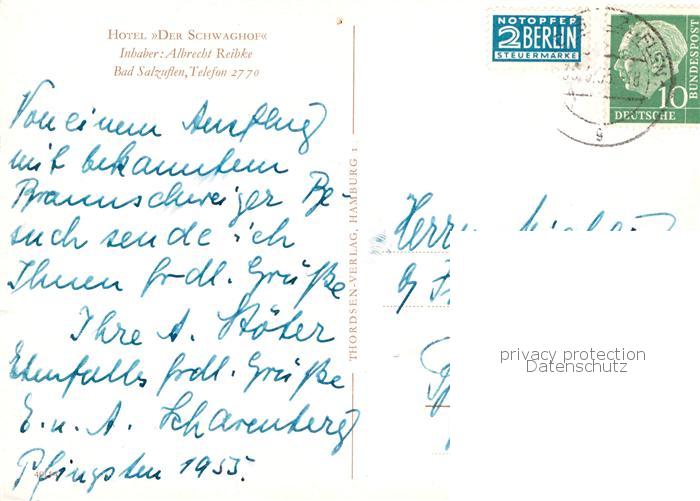 HOTEL »DER SCHWAGHOF«
Inhaber: Albrecht Reibke
Bad Salzuflen, Telefon 2770
Von einem Ausflug
mit bekanntem
Braunschweiger Be-
such sende ich
Ihnen frdl. Grüße
Ihre A. Stöter
Ebenfalls frdl. Grüße
E. u. A. Scharenberg
Pfingsten 1955.
THORDSEN-VERLAG, HAMBURG 1
NOTOPFER
2 BERLIN
STEUERMARKE
10
DEUTSCHE
BUNDESPOST
g
Herrn
privacy protection
Datenschutz